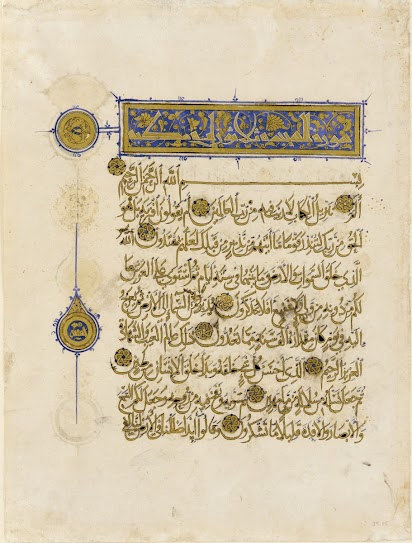 بسم الله الرحمن الرحيم
الم تنزيل الكتاب لا ريب فيه من رب العالمين ام يقولون افتريه بل هو
الحق من ربك لتنذر قوما ما اتيهم من نذير من قبلك لعلهم يهتدون الله
الذي خلق السموات والارض وما بينهما في ستة ايام ثم استوى على العرش ما
لكم من دونه من ولي ولا شفيع افلا تتذكرون يدبر الامر من السماء الى الارض ثم يعرج
اليه في يوم كان مقداره الف سنة مما تعدون ذلك عالم الغيب والشهادة
العزيز الرحيم الذي احسن كل شيء خلقه وبدا خلق الانسان من طين
ثم جعل نسله من سلالة من ماء مهين ثم سويه ونفخ فيه من روحه وجعل لكم السمع
والابصار والافئدة قليلا ما تشكرون وقالوا ائذا ضللنا في الارض ائنا لفي